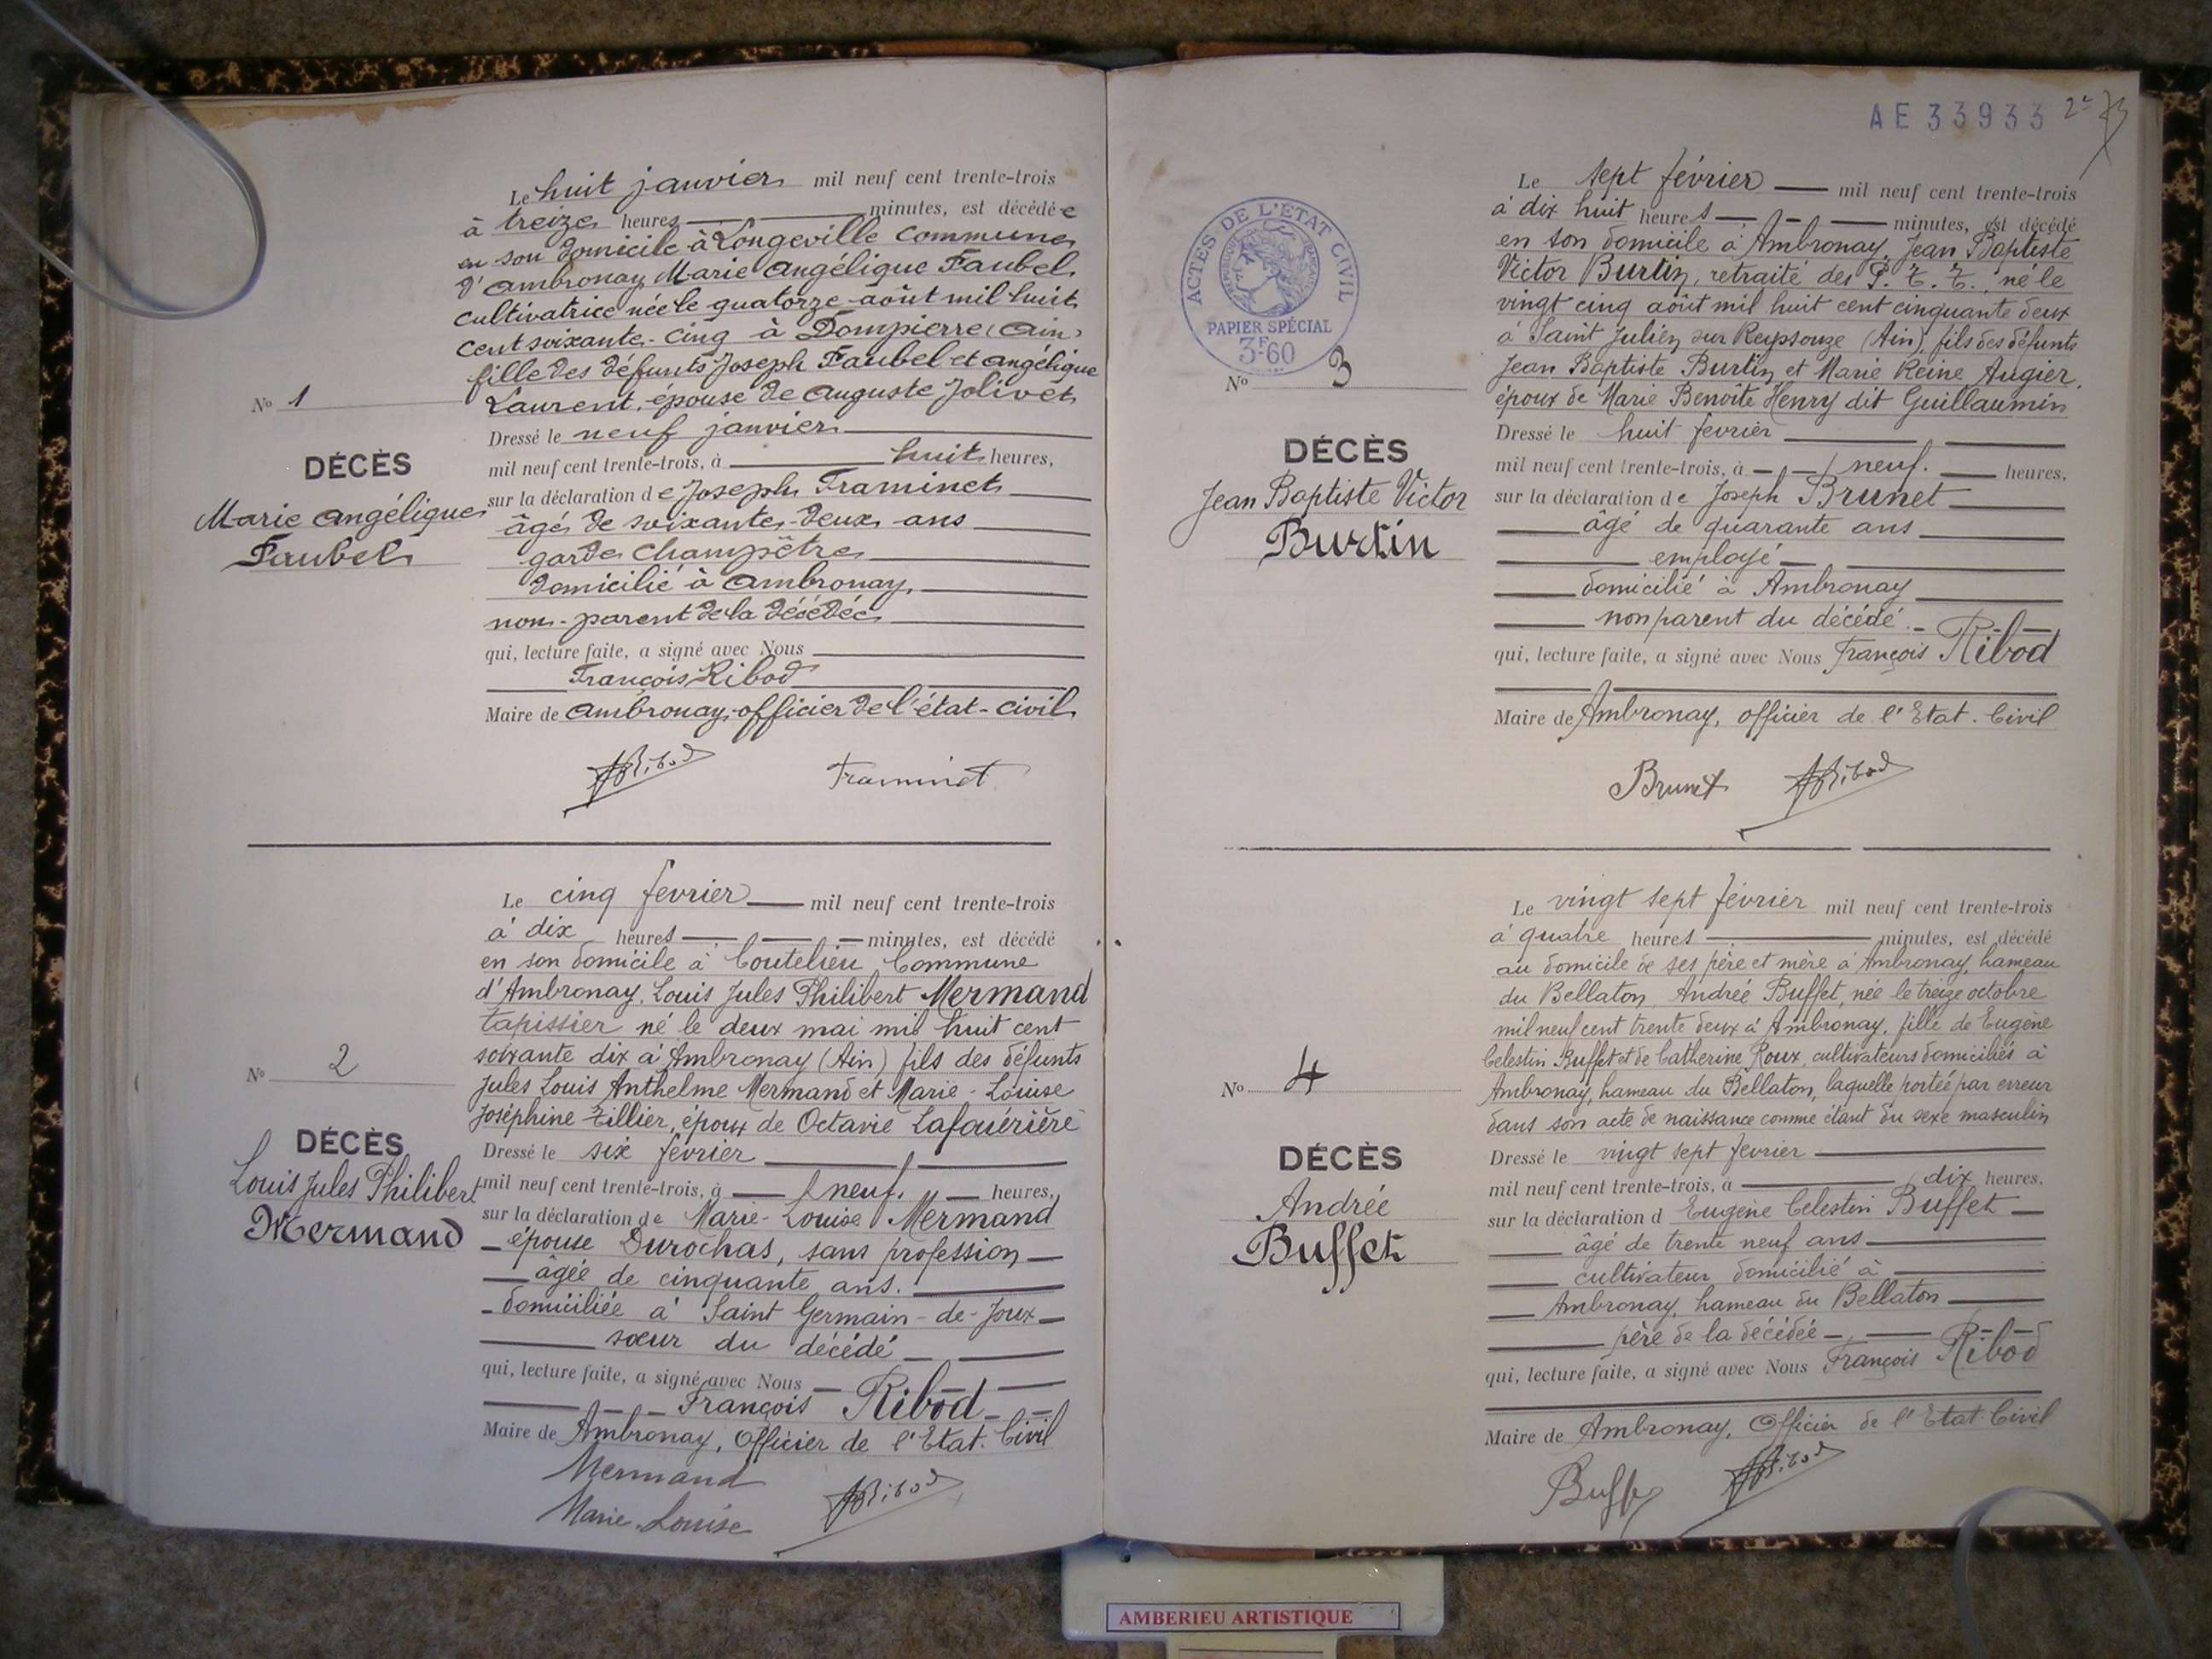 Le huit janvier mil neuf cent trente-trois
à treize heures minutes, est décédée
en son domicile à Longeville commune
d'Ambronay Marie Angélique Faubel
cultivatrice née le quatorze août mil huit
cent soixante-cinq à Dompierre (Ain)
fille des défunts Joseph Faubel et Angélique
Laurent, épouse de Auguste Jolivet
Dressé le neuf janvier
mil neuf cent trente-trois, à huit heures,
sur la déclaration de Joseph Traminet
âgé de soixante-deux ans
garde champêtre
domicilié à Ambronay,
non-parent de la décédée
qui, lecture faite, a signé avec Nous
François Ribod
Maire de Ambronay, officier de l'état-civil
No 1
DÉCÈS
Marie Angélique
Faubel
Ribod Traminet
Le cinq février mil neuf cent trente-trois
à dix heures minutes, est décédé
en son domicile à Coutelieu Commune
d'Ambronay, Louis Jules Philibert Mermand
tapissier né le deux mai mil huit cent
soixante dix à Ambronay (Ain) fils des défunts
Jules Louis Anthelme Mermand et Marie-Louise
Joséphine Tillier, époux de Octavie Lafouérière
Dressé le six février
mil neuf cent trente-trois, à neuf. heures,
sur la déclaration de Marie-Louise Mermand
épouse Durochas, sans profession
âgée de cinquante ans.
domiciliée à Saint Germain-de-Joux
sœur du décédé
qui, lecture faite, a signé avec Nous
François Ribod
Maire de Ambronay, Officier de l'Etat-Civil
No 2
DÉCÈS
Louis Jules Philibert
Mermand
Mermand
Marie-Louise
Ribod
AE 33933
ACTES DE L'ETAT CIVIL
PAPIER SPÉCIAL
3F60
Le sept février mil neuf cent trente-trois
à dix huit heures minutes, est décédé
en son domicile à Ambronay, Jean Baptiste
Victor Burtin, retraité des P.T.T., né le
vingt cinq août mil huit cent cinquante deux
à Saint Julien sur Reyssouze (Ain), fils des défunts
Jean Baptiste Burtin et Marie Reine Augier,
époux de Marie Benoîte Henry dit Guillaumin
Dressé le huit février
mil neuf cent trente-trois, à neuf. heures,
sur la déclaration de Joseph Brunet
âgé de quarante ans
employé
domicilié à Ambronay
non parent du décédé.
qui, lecture faite, a signé avec Nous François Ribod
Maire de Ambronay, officier de l'Etat-Civil
No 3
DÉCÈS
Jean Baptiste Victor
Burtin
Brunet Ribod
Le vingt sept février mil neuf cent trente-trois
à quatre heures minutes, est décédé
au domicile de ses père et mère à Ambronay, hameau
du Bellaton, Andrée Buffet, née le treize octobre
mil neuf cent trente deux à Ambronay, fille de Eugène
Celestin Buffet et de Catherine Roux, cultivateurs domiciliés à
Ambronay, hameau du Bellaton, laquelle portée par erreur
dans son acte de naissance comme étant du sexe masculin
Dressé le vingt sept février
mil neuf cent trente-trois, à dix heures,
sur la déclaration d Eugène Celestin Buffet
âgé de trente neuf ans
cultivateur domicilié à
Ambronay, hameau du Bellaton
père de la décédée
qui, lecture faite, a signé avec Nous François Ribod
Maire de Ambronay, Officier de l'Etat-Civil
No 4
DÉCÈS
Andrée
Buffet
Buffet Ribod
AMBERIEU ARTISTIQUE